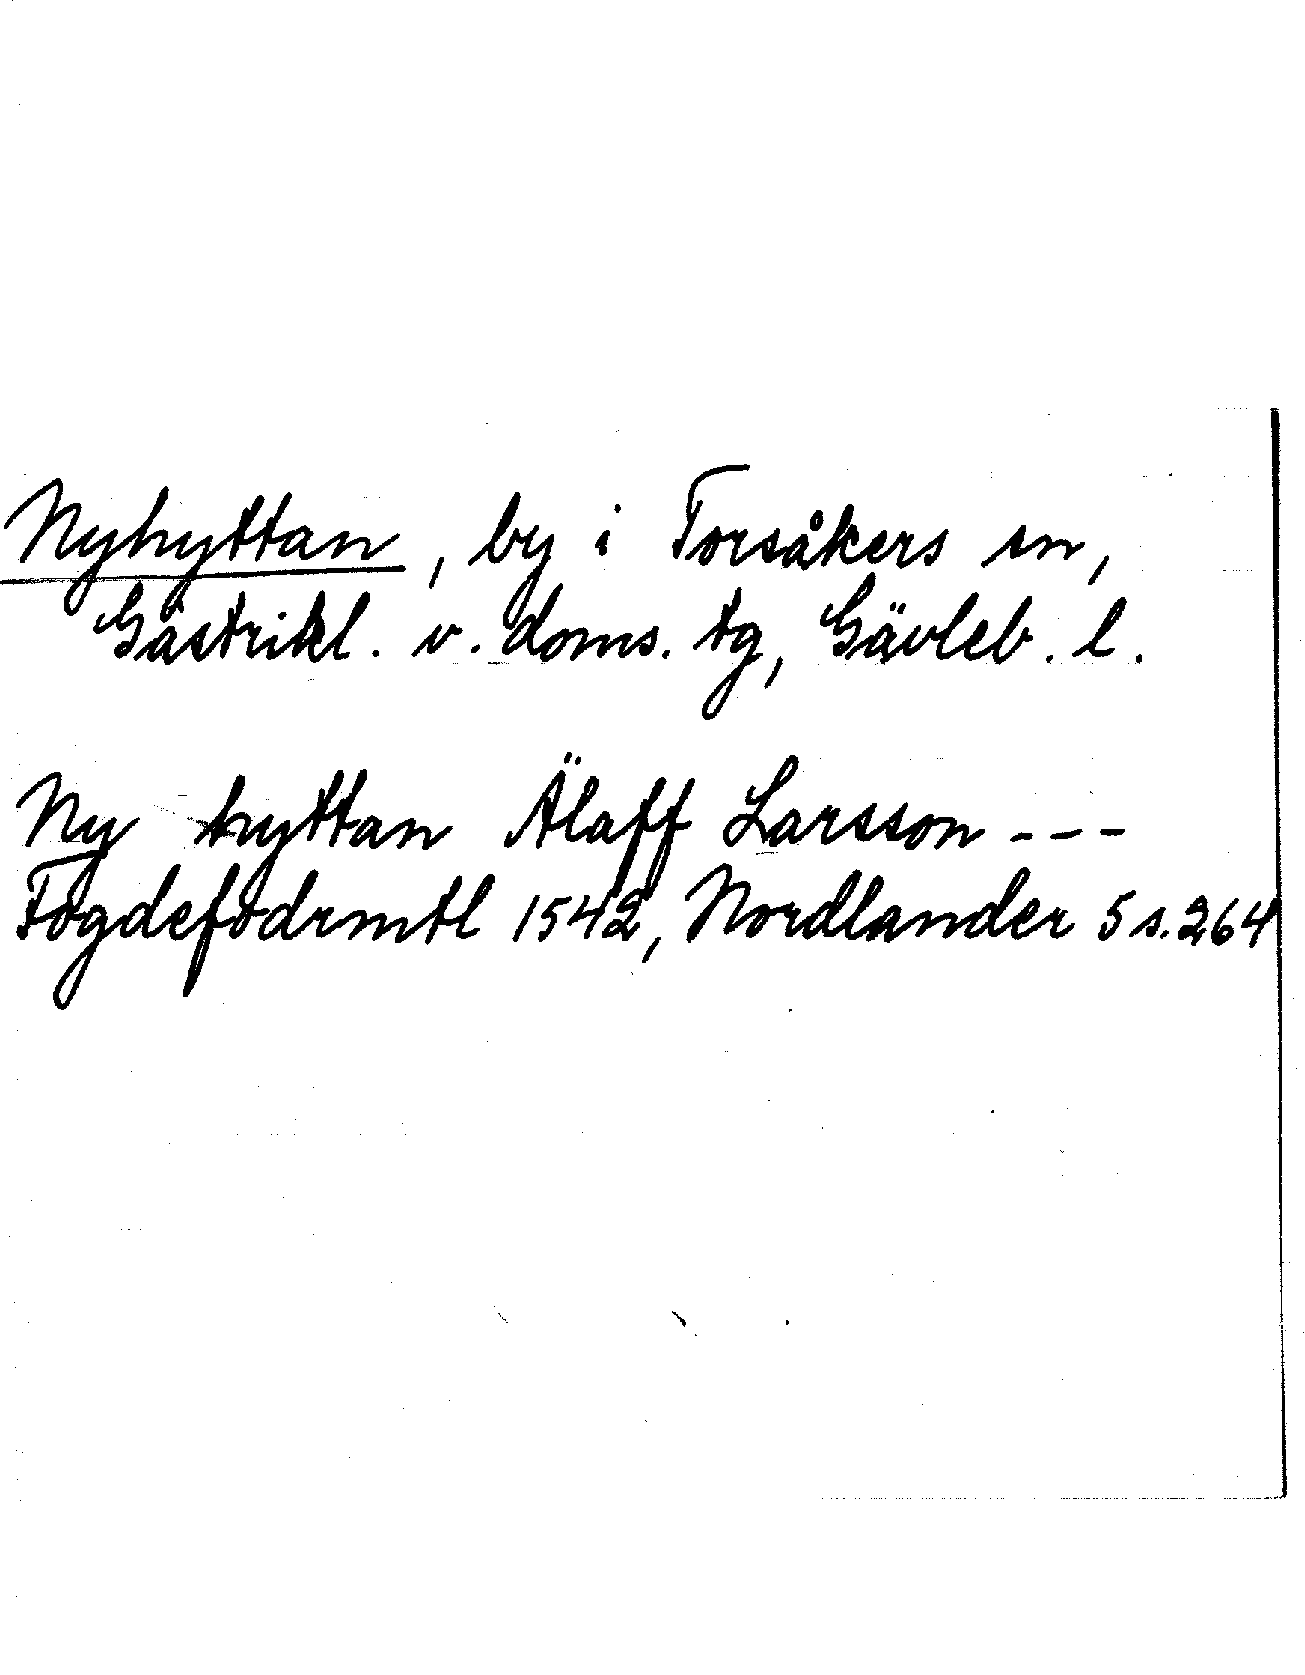 Nyhyttan, by i Torsåkers sn,
Gästrikl. v. doms. tg, Gävleb. l.
Ny hyttan Älaff Larsson ---
Fogdefodrmtl 1542, Nordlander 5 s. 264